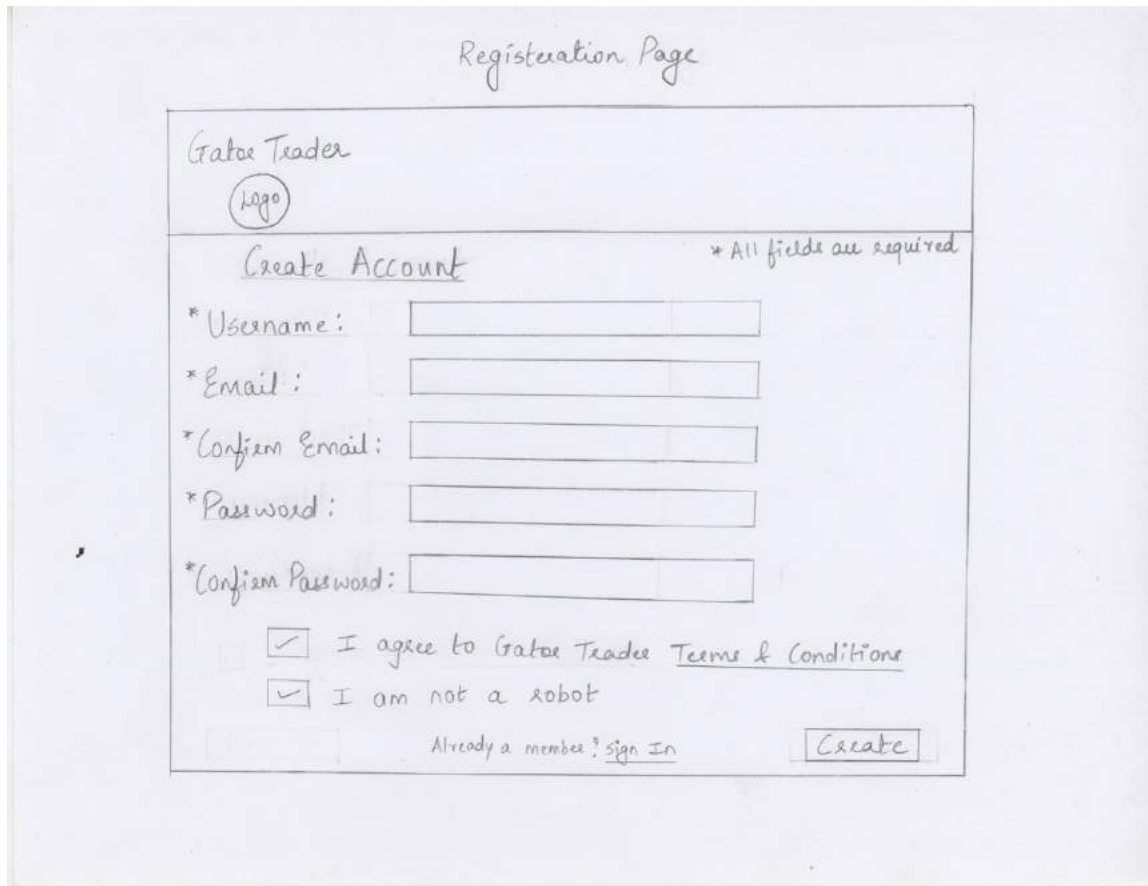 Registeration Page
Gator Trader
Logo
* All fields are required
Create Account
* Username:
* Email:
* Confirm Email:
* Password:
* Confirm Password:
I agree to Gator Trader Terms & Conditions
I am not a robot
Already a member? Sign In
Create